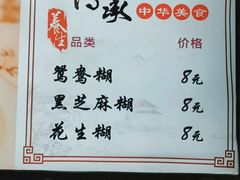 传承 中华美食
养生
品类 价格
鸳鸯糊 8元
黑芝麻糊 8元
花生糊 8元